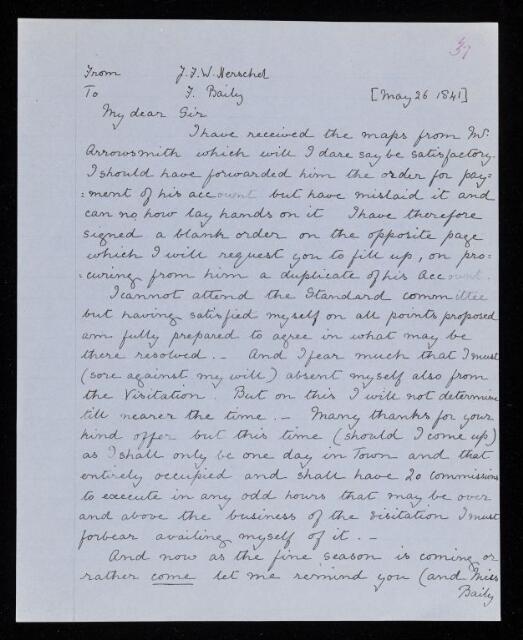 37
From J. F. W. Herschel
To F. Baily [May 26 1841]
My dear Sir
I have received the maps from Mr.
Arrowsmith which will I dare say be satisfactory.
I should have forwarded him the order for pay=
=ment of his account but have mislaid it and
can no how lay hands on it I have therefore
signed a blank order on the opposite page
which I will request you to fill up, on pro=
=curing from him a duplicate of his Account.
I cannot attend the Standard committee
but having satisfied myself on all points proposed
am fully prepared to agree in what may be
there resolved. — And I fear much that I must
(sore against my will) absent myself also from
the Visitation. But on this I will not determine
till nearer the time. — Many thanks for your
kind offer but this time (should I come up)
as I shall only be one day in Town and that
entirely occupied and shall have 20 commissions
to execute in any odd hours that may be over
and above the business of the Visitation I must
forbear availing myself of it. —
And now as the fine season is coming or
rather come let me remind you (and Miss
Baily